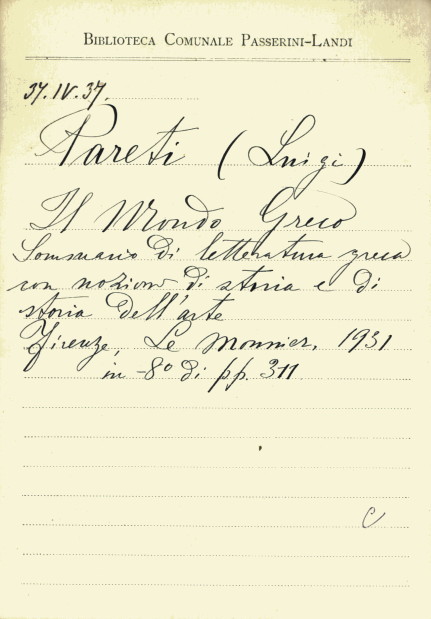 BIBLIOTECA COMUNALE PASSERINI-LANDI
37.IV.37.
Pareti (Luigi)
Il Mondo Greco
Sommario di letteratura greca
con nozioni di storia e di
storia dell'arte
Firenze, Le Monnier, 1931
in -8° di pp. 311.
C